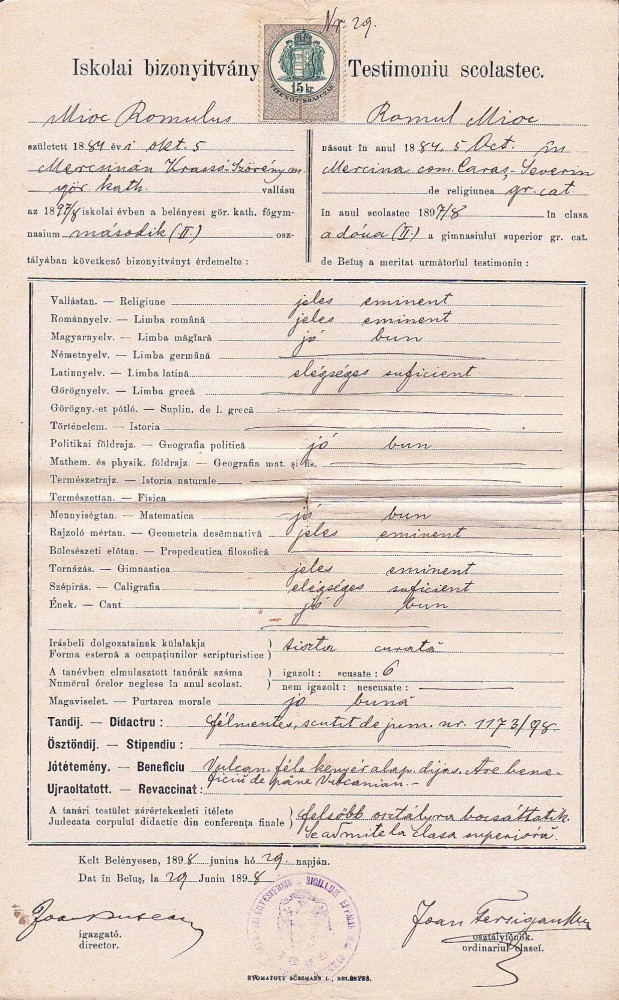 Nr. 29.
Iskolai bizonyitvány
Testimoniu scolastec.
15 kr.
Mioc Romulus
született 1884 évi okt. 5
Mercsinán Krassó-Szörény m
gör. kath. vallásu
az 1897/8 iskolai évben a belényesi gör. kath. főgym-
nasium második (II.) osz-
tályában következő bizonyitványt érdemelte :
Romul Mioc
născut în anul 1884, 5 Oct. în
Mercina com. Caraș-Severin
de religiunea gr. cat.
în anul scolastec 1897/8 în clasa
a dóua (II.) a gimnasiului superior gr. cat.
de Beiuș a meritat următoriul testimoniu :
Vallástan. — Religiune jeles eminent
Románnyelv. — Limba română jeles eminent
Magyarnyelv. — Limba măgiară jó bun
Németnyelv. — Limba germână
Latinnyelv. — Limba latină elégséges suficient
Görögnyelv. — Limba grecă
Görögny.-et pótló. — Suplin. de l. grecă
Történelem. — Istoria
Politikai földrajz. — Geografia politică jó bun
Mathem. és physik. földrajz — Geografia mat. și fis.
Természetrajz. — Istoria naturale
Természettan. — Fisica
Mennyiségtan. — Matematica jó bun
Rajzoló mértan. — Geometria desĕmnativă jeles eminent
Bölcsészeti előtan. — Propedeutica filosofică
Tornázás. — Gimnastica jeles eminent
Szépirás. — Caligrafia elégséges suficient
Ének. — Cant jó bun
Irásbeli dolgozatainak külalakja
Forma esternă a ocupațiunilor scripturistice ) tiszta curată
A tanévben elmulasztott tanórák száma ) igazolt : scusate : 6
Numĕrul órelor neglese în anul scolast. ) nem igazolt : nescusate :
Magaviselet. — Purtarea morale jó bună
Tandij. — Didactru : félmentes, scutit de jum. nr. 1173/98
Ösztöndij. — Stipendiu :
Jótétemény. — Beneficiu Vulcan-féle kenyéralap. dijas. Are bene-
Ujraoltatott. — Revaccinat : ficiu de pâne Vulcanian.
A tanári testület zárértekezleti itélete ) felsőbb osztályra bocsáttatik.
Judecata corpului didactic din conferența finale ) Se admite la clasa superióră.
Kelt Belényesen, 1898 junius hó 29. napján.
Dat în Beiuș, la 29 Juniu 1898.
SIGILLUM
igazgató.
director.
Joan
osztályfőnök.
ordinariul clasei.
NYOMATOTT SÜSSMANN L., BELÉNYES.